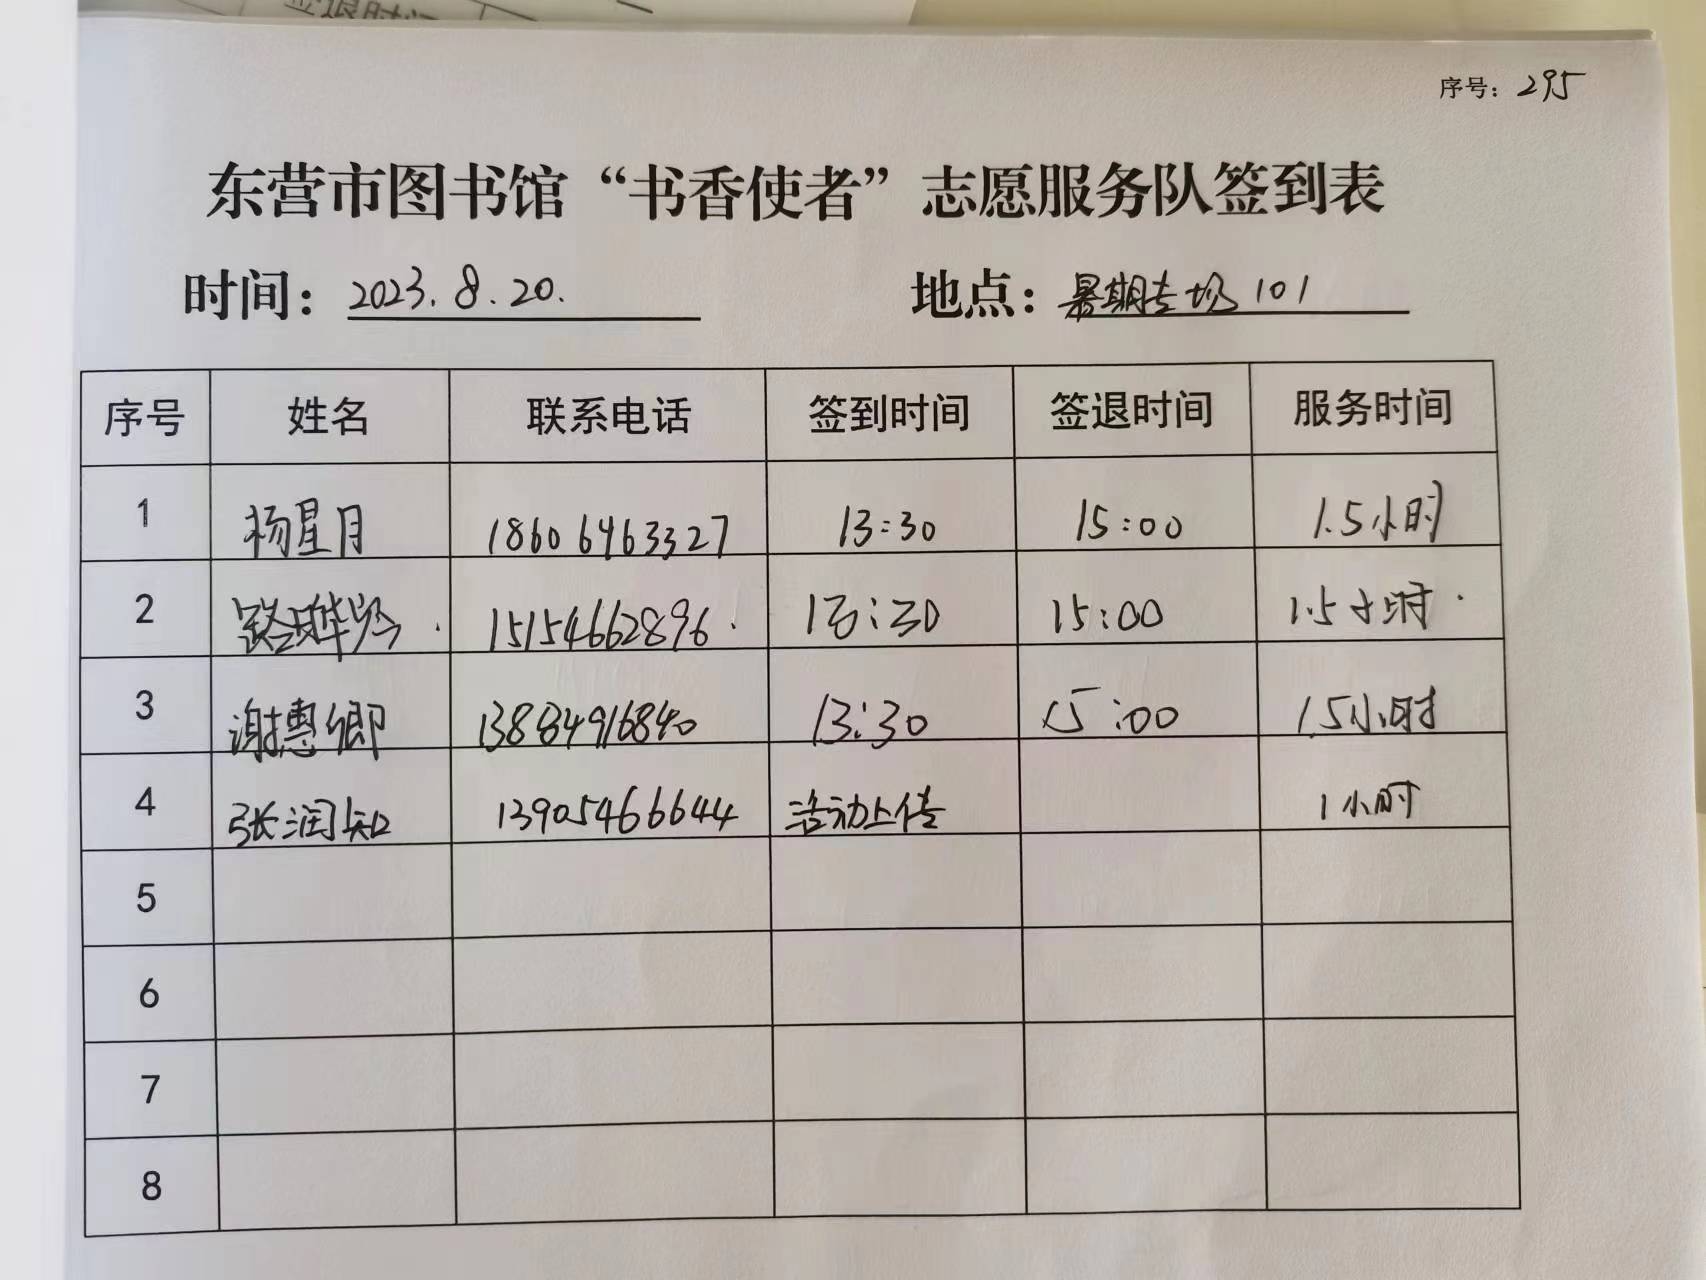 签退时间
序号：295
东营市图书馆“书香使者”志愿服务队签到表
时间：2023.8.20.
地点：暑期专场101
序号 姓名 联系电话 签到时间 签退时间 服务时间
1 杨星月 18606463327 13:30 15:00 1.5小时
2 15154662896. 13:30 15:00 1.5小时.
3 谢惠卿 13884916840 13:30 15:00 1.5小时
4 张润知 13905466644 活动上传 1小时
5
6
7
8